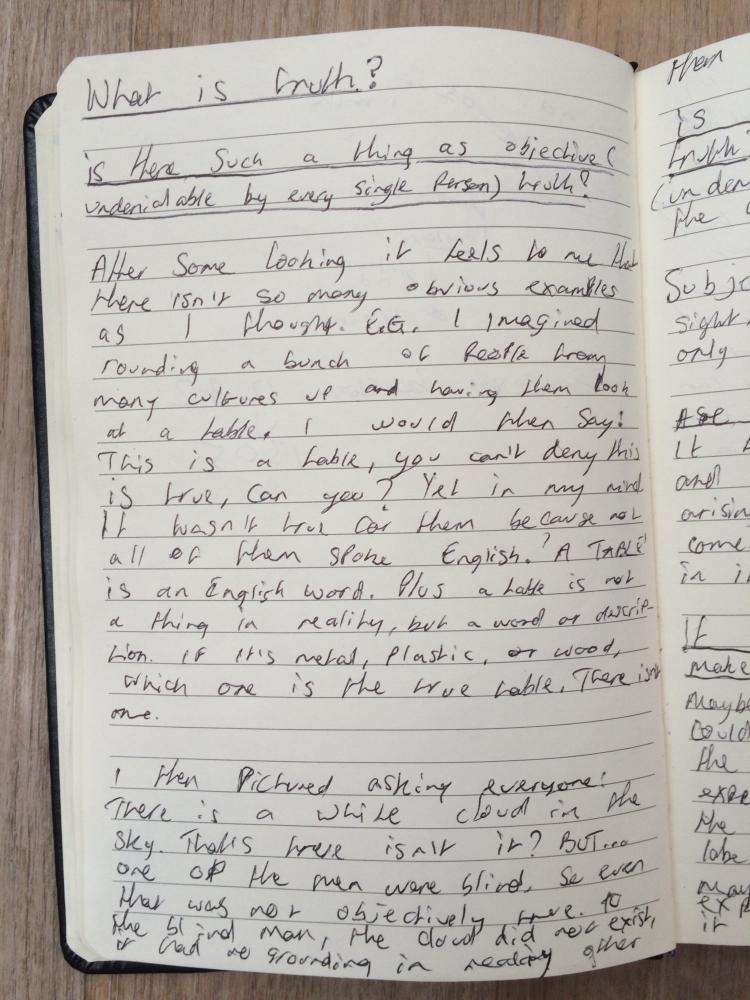 What is truth?
is there such a thing as objective (
undeniable by every single person) truth?
After some looking it feels to me that
there isn't so many obvious examples
as I thought. E.G. I imagined
rounding a bunch of people from
many cultures up and having them look
at a table. I would then say:
This is a table, you can't deny this
is true, can you? Yet in my mind
it wasn't true for them because not
all of them spoke English. 'A TABLE'
is an English word. Plus a table is not
a thing in reality, but a word or descrip-
tion. If it's metal, plastic, or wood,
which one is the true table. There isn't
one.
I then pictured asking everyone:
There is a white cloud in the
sky. That's true isn't it? BUT...
one of the men were blind, so even
that was not objectively true. to
the blind man, the cloud did not exist,
it had no grounding in reality other
then
is
truth
(unden
the
Subje
sight,
only
It
and
arisin
come
in i
If
make
Maybe
could
the
expe
the
labe
may
exp
it